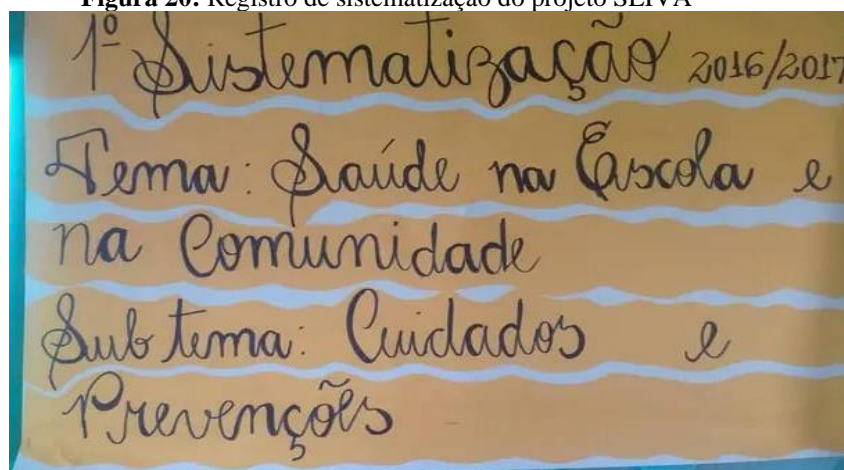 Figura 20: Registro de sistematização do projeto SEIVA
1º Sistematização 2016/2017
Tema: Saúde na Escola e
na Comunidade
Sub tema: Cuidados e
Prevenções